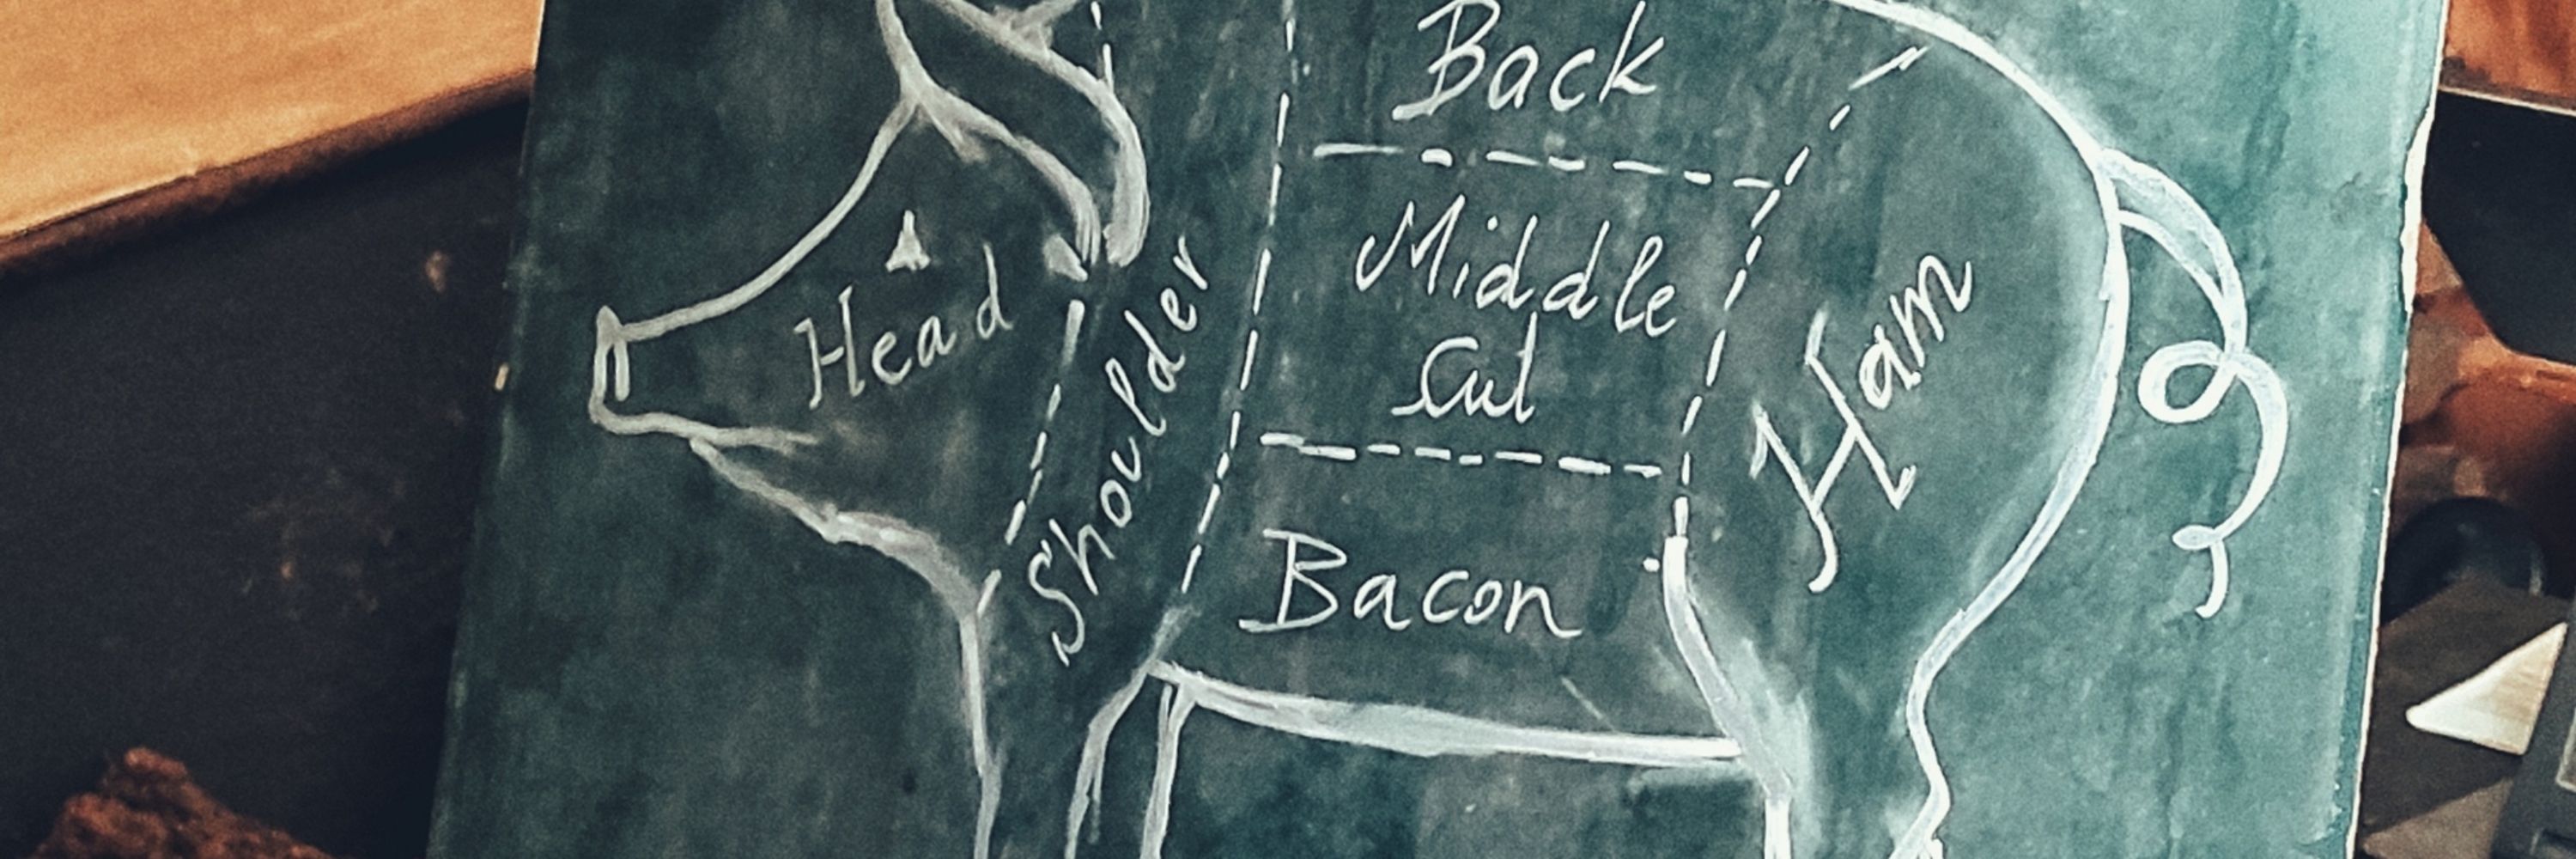 Back
Middle
Cut
Head
Shoulder
Ham
Bacon